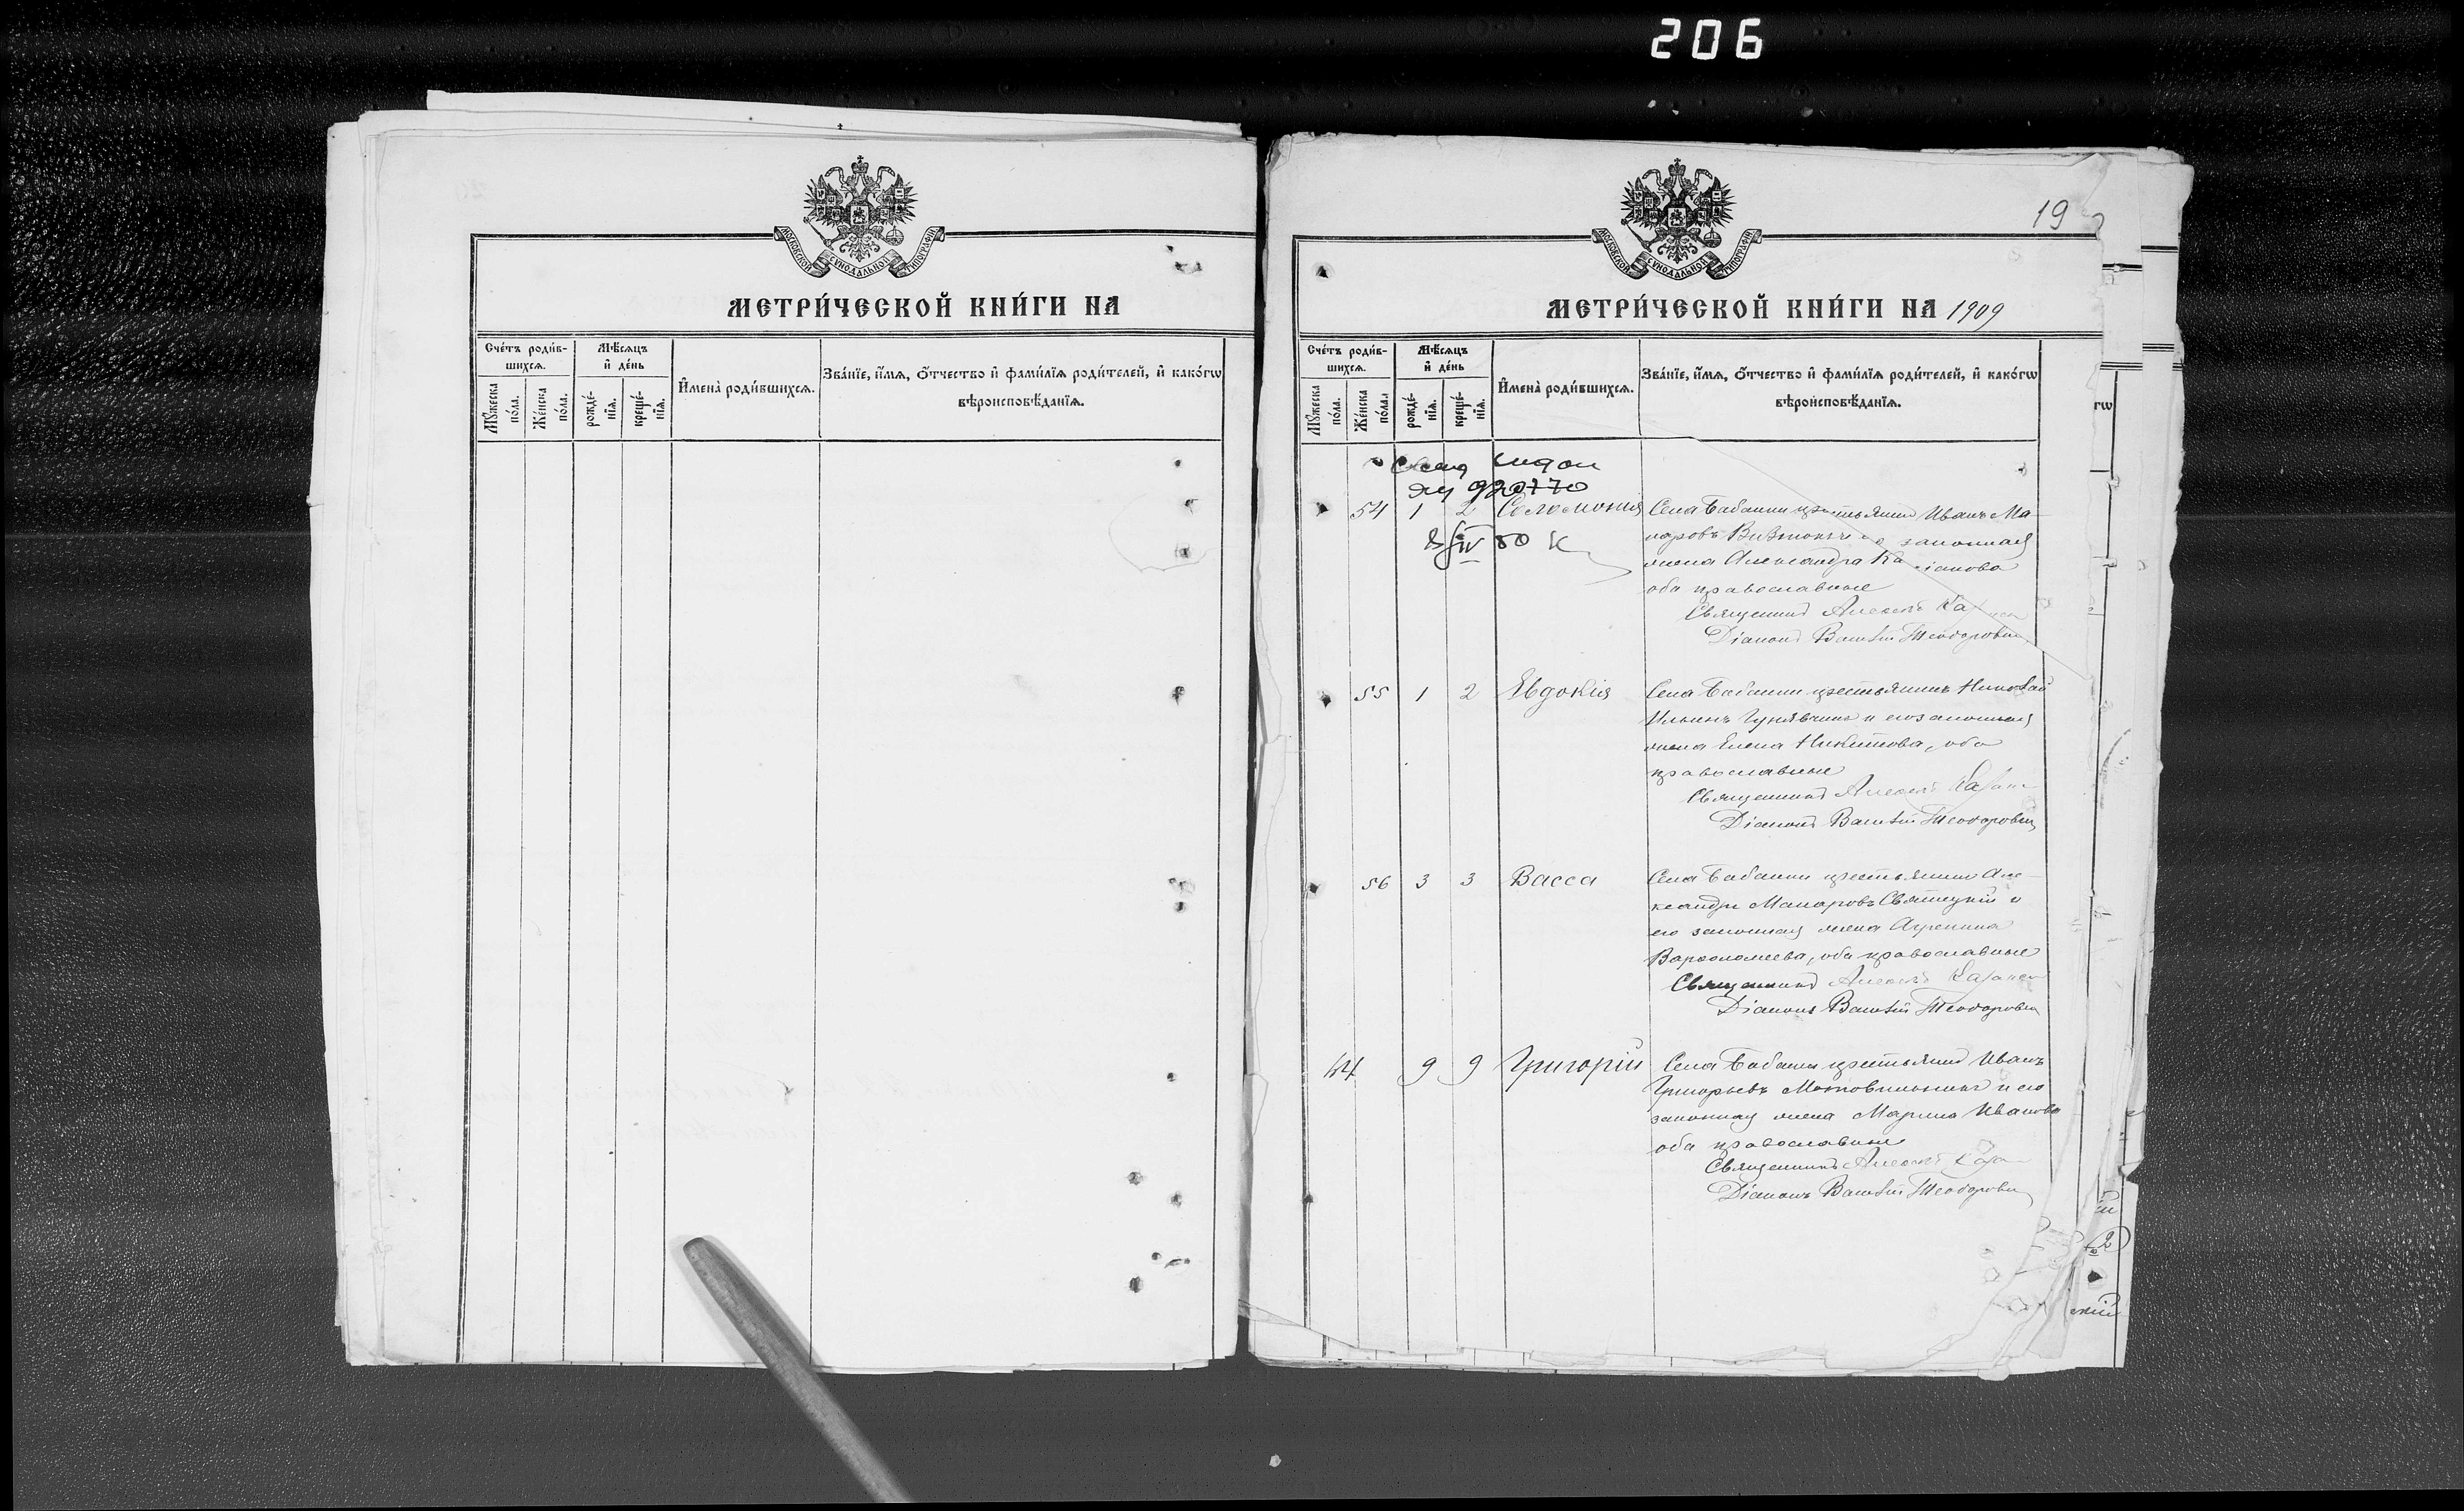 206
МОСКОВСКОЙ СУНОДАЛЬНОЙ ТИПОГРАФІИ
МЕТРИ́ЧЕСКОЙ КНИ́ГИ НА
Сче́тъ роди́в-
шихсѧ.
Мѣ́сѧцъ
и҆ де́нь
Мꙋ́жеска
по́ла.
Же́нска
по́ла.
рожде́-
нїѧ.
креще́-
нїѧ.
И҆мена̀ роди́вшихсѧ.
Зва́нїе, и҆́мѧ, ѻ҆́тчество и҆ фами́лїѧ роди́телей, и҆ како́гѡ
вѣроисповѣ́данїѧ.
МОСКОВСКОЙ СУНОДАЛЬНОЙ ТИПОГРАФІИ
19
МЕТРИ́ЧЕСКОЙ КНИ́ГИ НА 1909
Сче́тъ роди́в-
шихсѧ.
Мѣ́сѧцъ
и҆ де́нь
Мꙋ́жеска
по́ла.
Же́нска
по́ла.
рожде́-
нїѧ.
креще́-
нїѧ.
И҆мена̀ роди́вшихсѧ.
Зва́нїе, и҆́мѧ, ѻ҆́тчество и҆ фами́лїѧ роди́телей, и҆ како́гѡ
вѣроисповѣ́данїѧ.
гѡ
54 1 2 Соломонія Села Бабанки крестьянинъ Иванъ Ма-
каровъ законная
жена Александра
оба православные
Священникъ Алексѣй
Діаконъ Василій Теодоровичъ
80 к
55 1 2 Евдокія Села Бабанки крестьянинъ Николай
Ильинъ и его законная
жена Елена Никитова, оба
православные
Священникъ Алексѣй
Діаконъ Василій Теодоровичъ
56 3 3 Васса Села Бабанки крестьянинъ Але-
ксандръ Макаровъ Святецкій и
его законная жена Агрепина
Варфоломеева, оба православные
Священникъ Алексѣй
Діаконъ Василій Теодоровичъ
44 9 9 Григорій Села Бабанки крестьянинъ Иванъ
Григорьевъ и его
законная жена Марина Иванова
оба православные
Священникъ Алексѣй
Діаконъ Василій Теодоровичъ